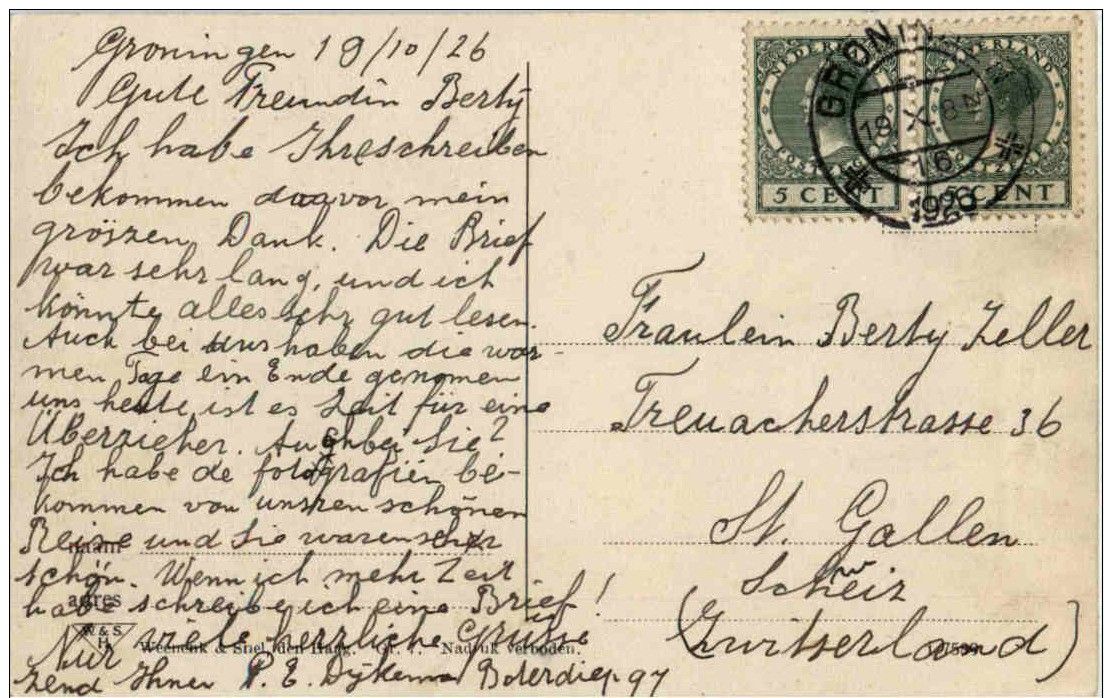 Groningen 18/10/26
Gute Freundin Berty
Ich habe Ihreschreiben
bekommen davor mein
gröszen Dank. Die Brief
war sehr lang, und ich
könnte alles sehr gut lesen.
Auch bei uns haben die war-
men Tage ein Ende genomen
uns heute ist es Zeit für eine
Überzieher. Auch bei Sie?
Ich habe de fotografien be-
kommen von unsren schönen
Reise und Sie waren sehr
schön. Wenn ich mehr Zeit
habe schreibe ich eine Brief!
Nur viele herzliche Grüsse
zend Ihnen P. E. Dykema Boterdiep 97
naam
adres
W & S
H
Weenenk & Snel, den Haag. Gr. Nadruk verboden.
NEDERLAND
POSTZEGEL
5 CENT
NEDERLAND
POSTZEGEL
5 CENT
GRONINGEN
18 X 8
16
1926
Fraulein Berty Zeller
Treuacherstrasse 36
St. Gallen
Schweiz
(Zwitserland)